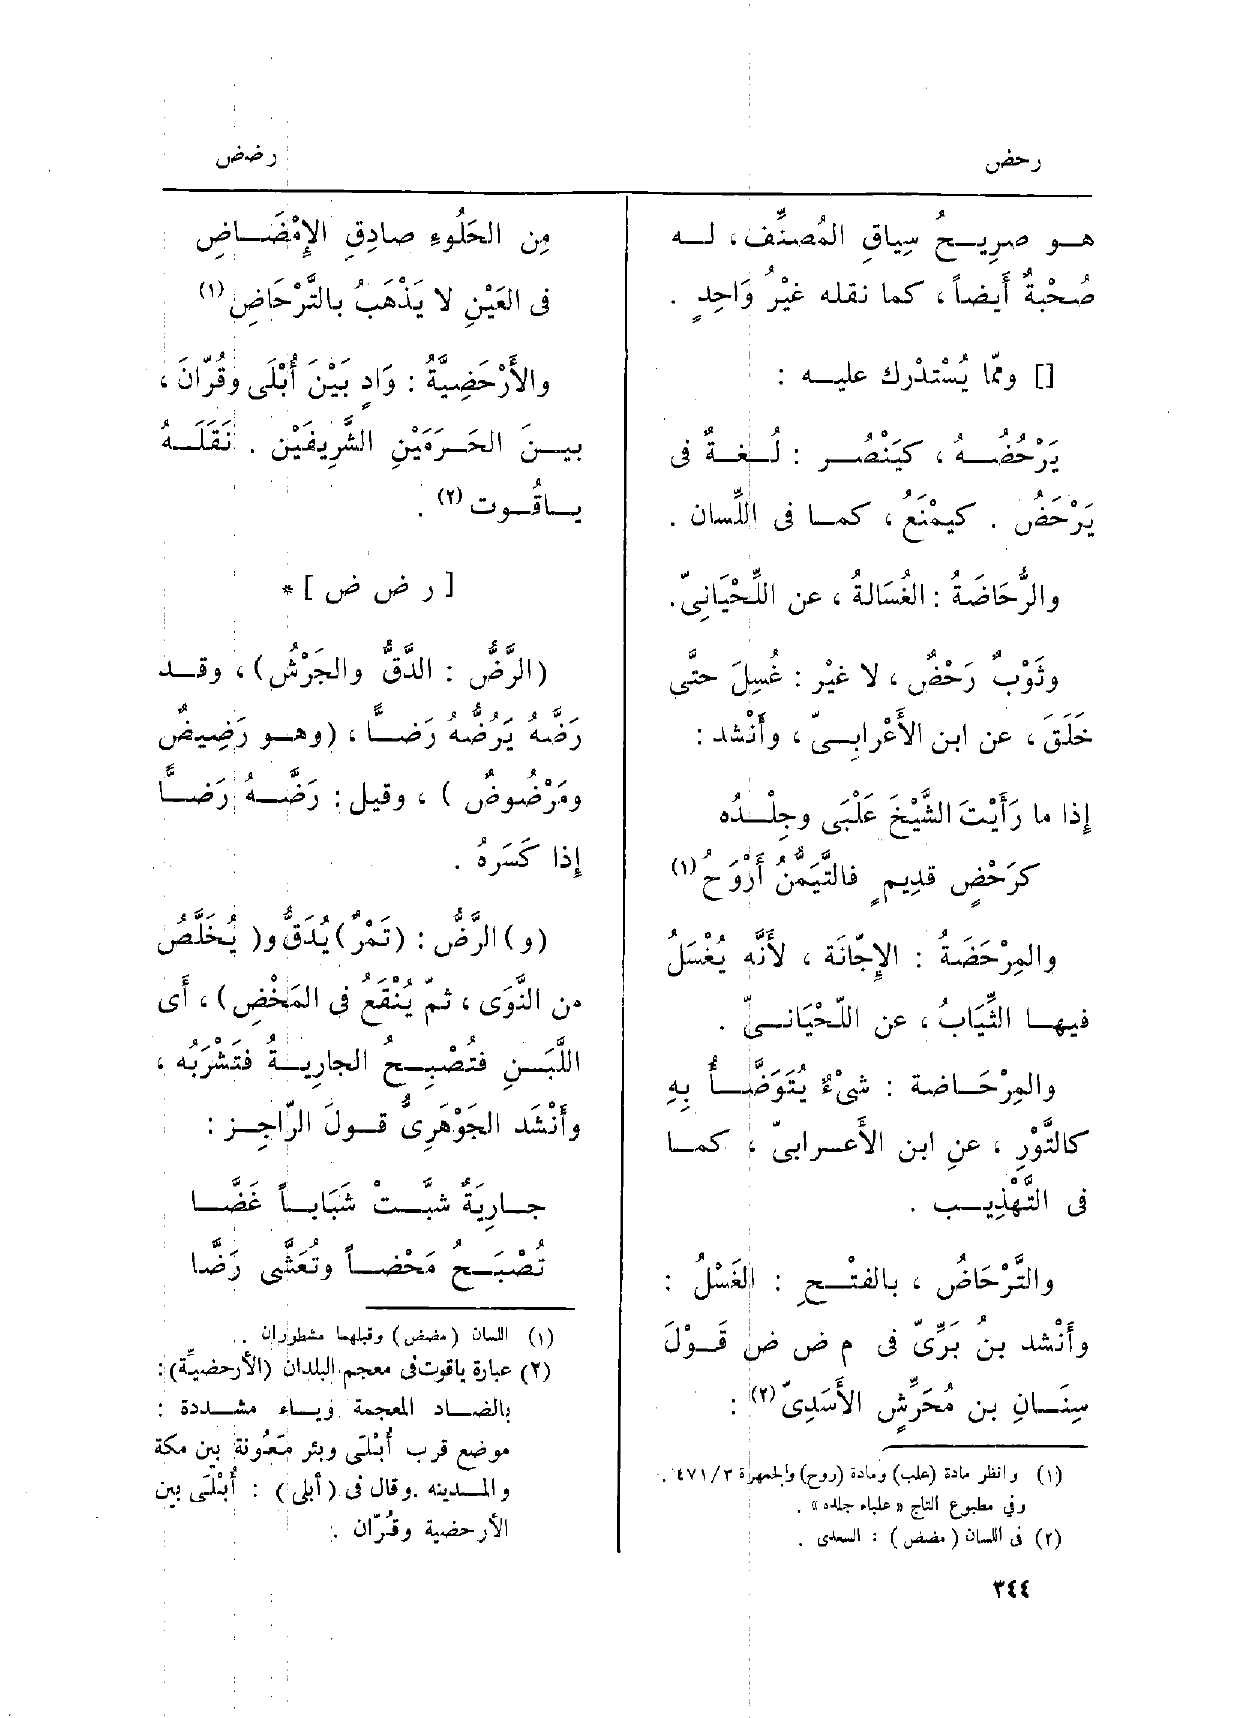 رحض
رضض
هو صرِيحُ سِياقِ المُصنِّف، له
صُحْبَةٌ أَيضاً، كما نقله غيْرُ وَاحِدٍ .
[] وممّا يُسْتدْرك عليه :
يَرْحُضُهُ ، كيَنْصُر : لُغةٌ فى
يَرْحَضُ . كيمْنَعُ ، كما فى اللِّسان .
والرُّحَاضَةُ : الغُسَالةُ ، عن اللِّحْيَانِيّ.
وثَوْبٌ رَحْضٌ ، لا غيْر : غُسِلَ حتَّى
خَلَقَ ، عن ابن الأَعْرابيّ ، وأَنْشد :
إذا ما رَأَيْتَ الشَّيْخَ عَلْبَى وجِلْدُه
كرَحْضٍ قديمٍ فالتَّيَمُّنُ أَرْوَحُ (١)
والمِرْحَضَةُ : الإِجّانَة ، لأَنَّه يُغْسَلُ
فيها الثِّيَابُ ، عن اللّحْيَانيّ .
والمِرْحَاضة : شىْءٌ يُتَوَضَّأُ بِهِ
كالتَّوْرِ ، عنِ ابن الأَعرابيّ ، كما
فى التَّهْذِيب .
والتَّرْحَاضُ ، بالفتْحِ : الغَسْلُ :
وأَنْشد بن بَرِّىّ فى م ض ض قَوْلَ
سِنَانِ بن مُحَرِّشٍ الأَسَدِىّ (٢) :
(١) وانظر مادة (علب) ومادة (روح) والجمهرة ٤٧١/٣ .
وفي مطبوع التاج « علباء جلده » .
(٢) فى اللسان (مضض) : السعدى .
مِن الحَلُوءِ صادِقِ الإِمْضَاضِ
فى العَيْنِ لا يَذْهَبُ بالتَّرْحَاضِ (١)
والأَرْحَضِيَّةُ : وَادٍ بَيْنَ أُبْلَى وقُرّانَ ،
بينَ الحَرَمَيْنِ الشَّرِيفَيْن . نَقَلَهُ
ياقُوت (٢) .
[ ر ض ض ] *
(الرَّضُّ : الدَّقُّ والجَرْشُ) ، وقد
رَضَّهُ يَرُضُّهُ رَضًّا ، (وهو رَضِيضٌ
ومَرْضُوضٌ ) ، وقيل : رَضَّهُ رَضًّا
إذا كَسَرهُ .
(و) الرَّضُّ : (تَمْرٌ) يُدَقُّ و( يُخَلَّصُ
من النَّوَى ، ثمّ يُنْقَعُ فى المَخْضِ) ، أَى
اللَّبَنِ فتُصْبِحُ الجارِيةُ فتَشْرَبُه ،
وأَنْشَد الجَوْهَرِىُّ قولَ الرّاجِزِ :
جارِيَةٌ شبَّتْ شَبَاباً غَضَّا
تُصْبَحُ مَحْضاً وتُعَشَّى رَضَّا
(١) اللسان (مضض) وقبلهما مشطوران .
(٢) عبارة ياقوت فى معجم البلدان (الأرحضيَّة) :
بالضاد المعجمة وياء مشددة :
موضع قرب أُبْلَى وبئر مَعُونة بين مكة
والمدينه . وقال فى (أبلى) : أُبْلَى بين
الأرحضية وقُرّان .
٣٤٤